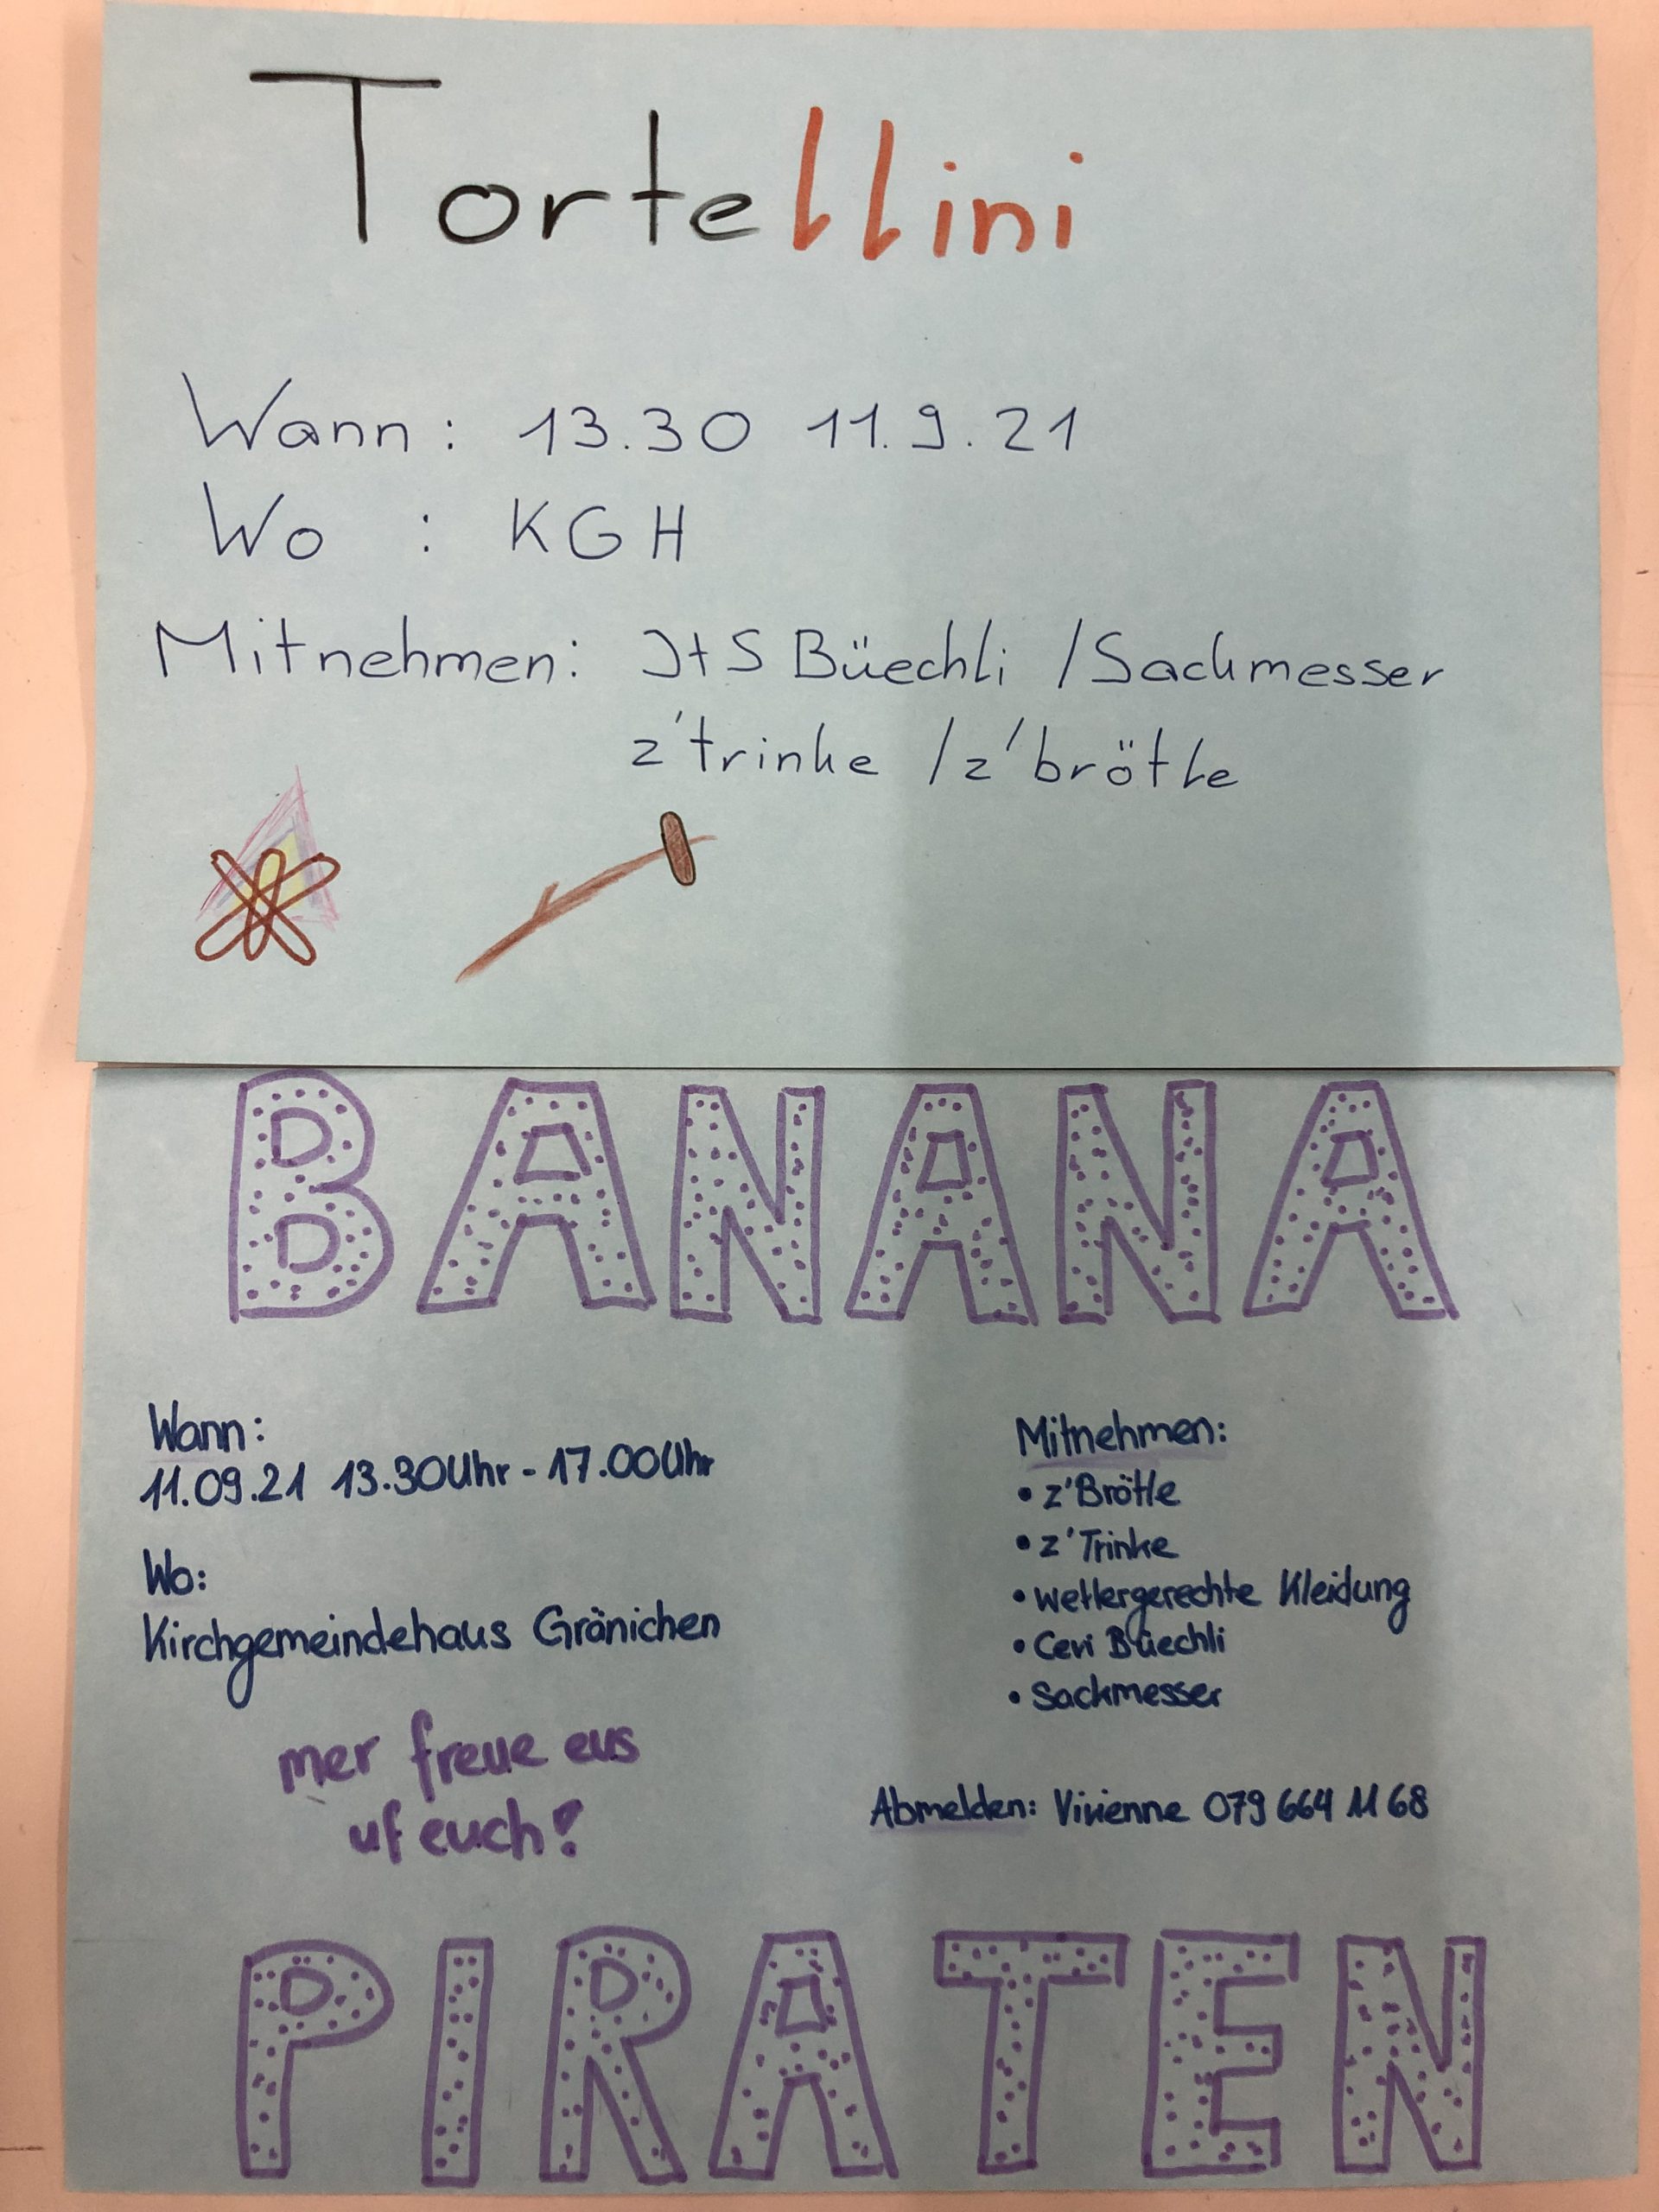 Tortellini
Wann: 13.30 11.9.21
Wo : KGH
Mitnehmen: J+S Büechli / Sackmesser
z'trinke / z'brötle
BANANA
Wann:
11.09.21 13.30Uhr - 17.00Uhr
Wo:
Kirchgemeindehaus Gränichen
mer freue eus
uf euch!
Mitnehmen:
• z'Brötle
• z'Trinke
• wettergerechte Kleidung
• Cevi Büechli
• Sackmesser
Abmelden: Vivienne 079 664 11 68
PIRATEN